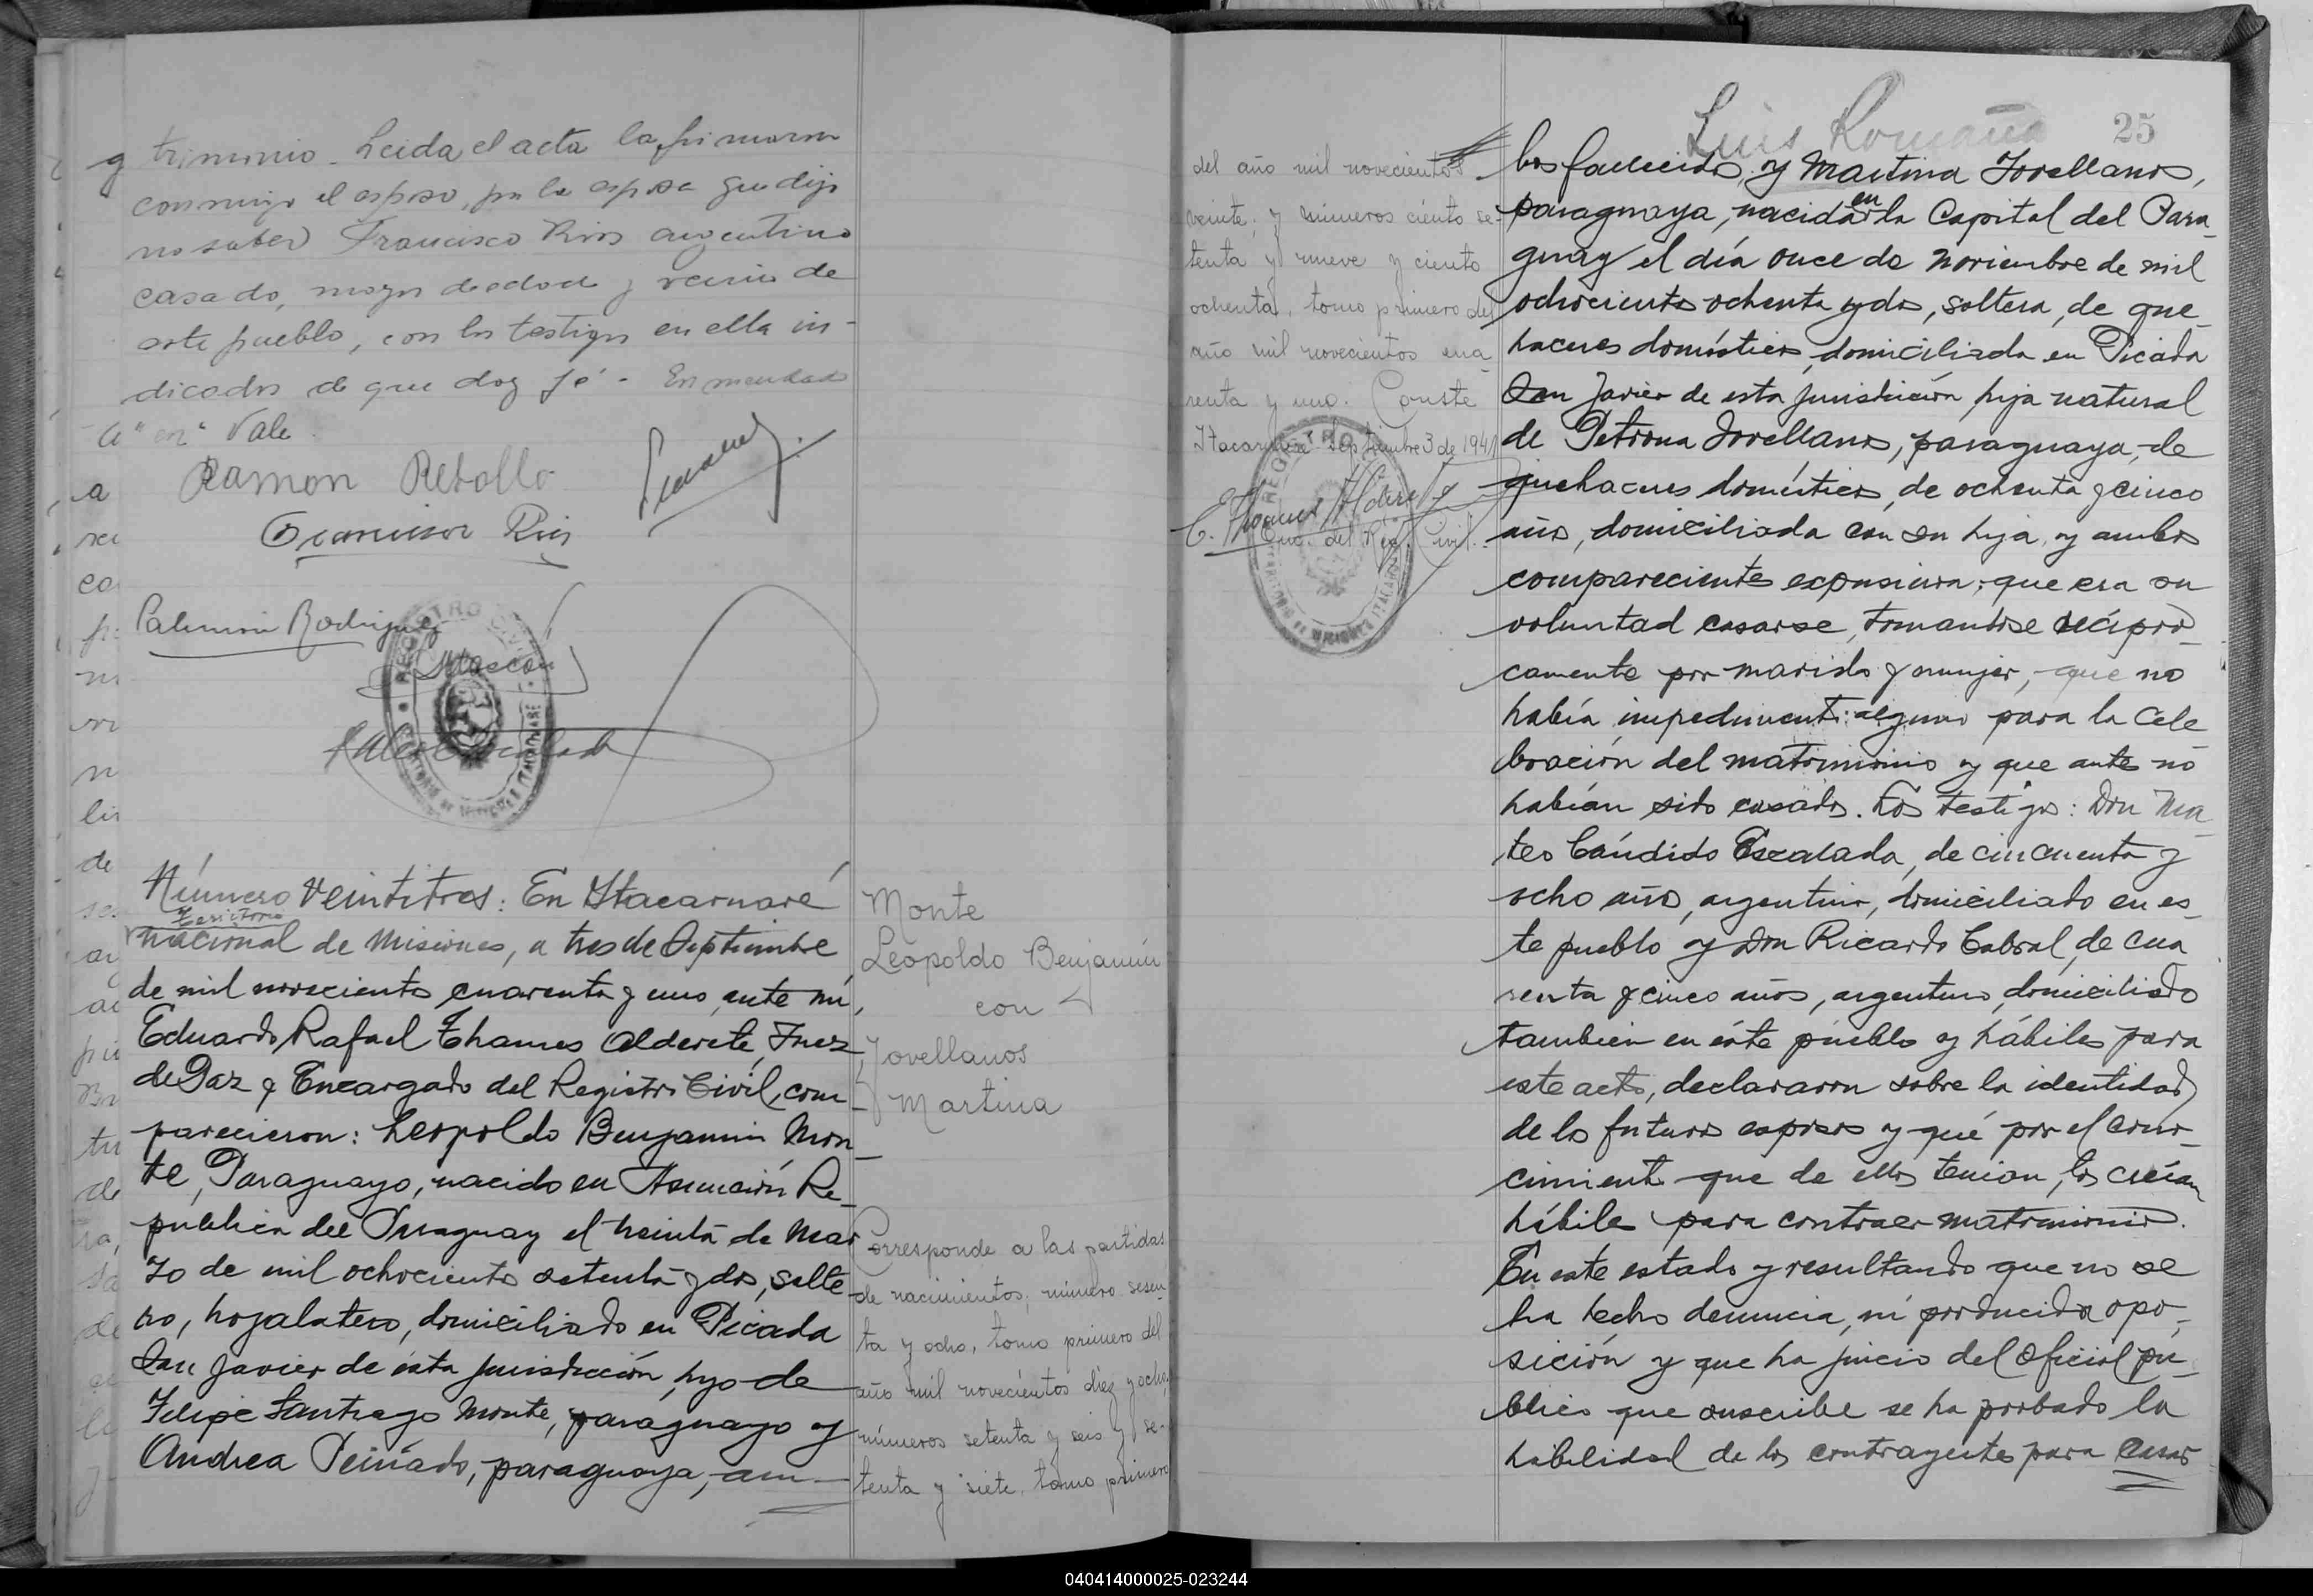 trimonio. Leida el acta la firmaron
conmigo el esposo, por la esposa que dijo
no saber Francisco Rios argentino
casado, mayor de edad y vecino de
este pueblo, con los testigos en ella in-
dicados de que doy fé. Enmendado
"en" Vale.
Ramon Rebollo
Francisco Rios
Palemon Rodriguez
REGISTRO CIVIL
Número veintitres: En Itacaruaré
Territorio
nacional de Misiones, a tres de Septiembre
de mil novecientos cuarenta y uno, ante mi,
Eduardo Rafael Thames Alderete, Juez
de Paz y Encargado del Registro Civil, com-
parecieron: Leopoldo Benjamin Mon-
te, Paraguayo, nacido en Asunción Re-
publica del Paraguay el treinta de Mar-
zo de mil ochocientos setenta y dos, solte-
ro, hojalatero, domiciliado en Picada
San Javier de ésta jurisdicción, hijo de
Felipe Santiago Monte, paraguayo y
Andrea Peinado, paraguaya, am-
Monte
Leopoldo Benjamín
con
Jovellanos
Martina
Corresponde a las partidas
de nacimientos; número sesen-
ta y ocho, tomo primero del
año mil novecientos diez y ocho;
números setenta y seis y se-
tenta y siete, tomo primero
del año mil novecientos
veinte; y números ciento se-
tenta y nueve y ciento
ochenta, tomo primero del
año mil novecientos cua-
renta y uno. Conste
Itacaruaré Septiembre 3 de 1941
E. Thames Alderete
Enc. del Reg. Civil.
Luis Romaña
25
bos fallecidos, y Martina Jovellanos,
paraguaya, nacida en la Capital del Para-
guay el día once de Noviembre de mil
ochocientos ochenta y dos, soltera, de que-
haceres domésticos, domiciliada en Picada
San Javier de esta jurisdicción, hija natural
de Petrona Jovellanos, paraguaya, de
quehaceres domésticos, de ochenta y cinco
años, domiciliada con su hija, y ambos
comparecientes expusieron: que era su
voluntad casarse, tomandose recipro-
camente por marido y mujer, que no
había impedimento alguno para la cele
bración del matrimonio y que antes no
habían sido casados. Los testigos: Don Ma-
teo Cándido Escalada, de cincuenta y
ocho años, argentino, domiciliado en es-
te pueblo y Don Ricardo Cabral, de cua
renta y cinco años, argentino, domiciliado
tambien en éste pueblo y hábiles para
este acto, declararon sobre la identidad
de los futuros esposos y qué por el cono-
cimiento que de ellos tenian, los creían
hábiles para contraer matrimonio.
En este estado y resultando que no se
ha hecho denuncia, ni producido opo-
sición y que ha juicio del Oficial pú-
blico que suscribe se ha probado la
habilidad de los contrayentes para casar
040414000025-023244